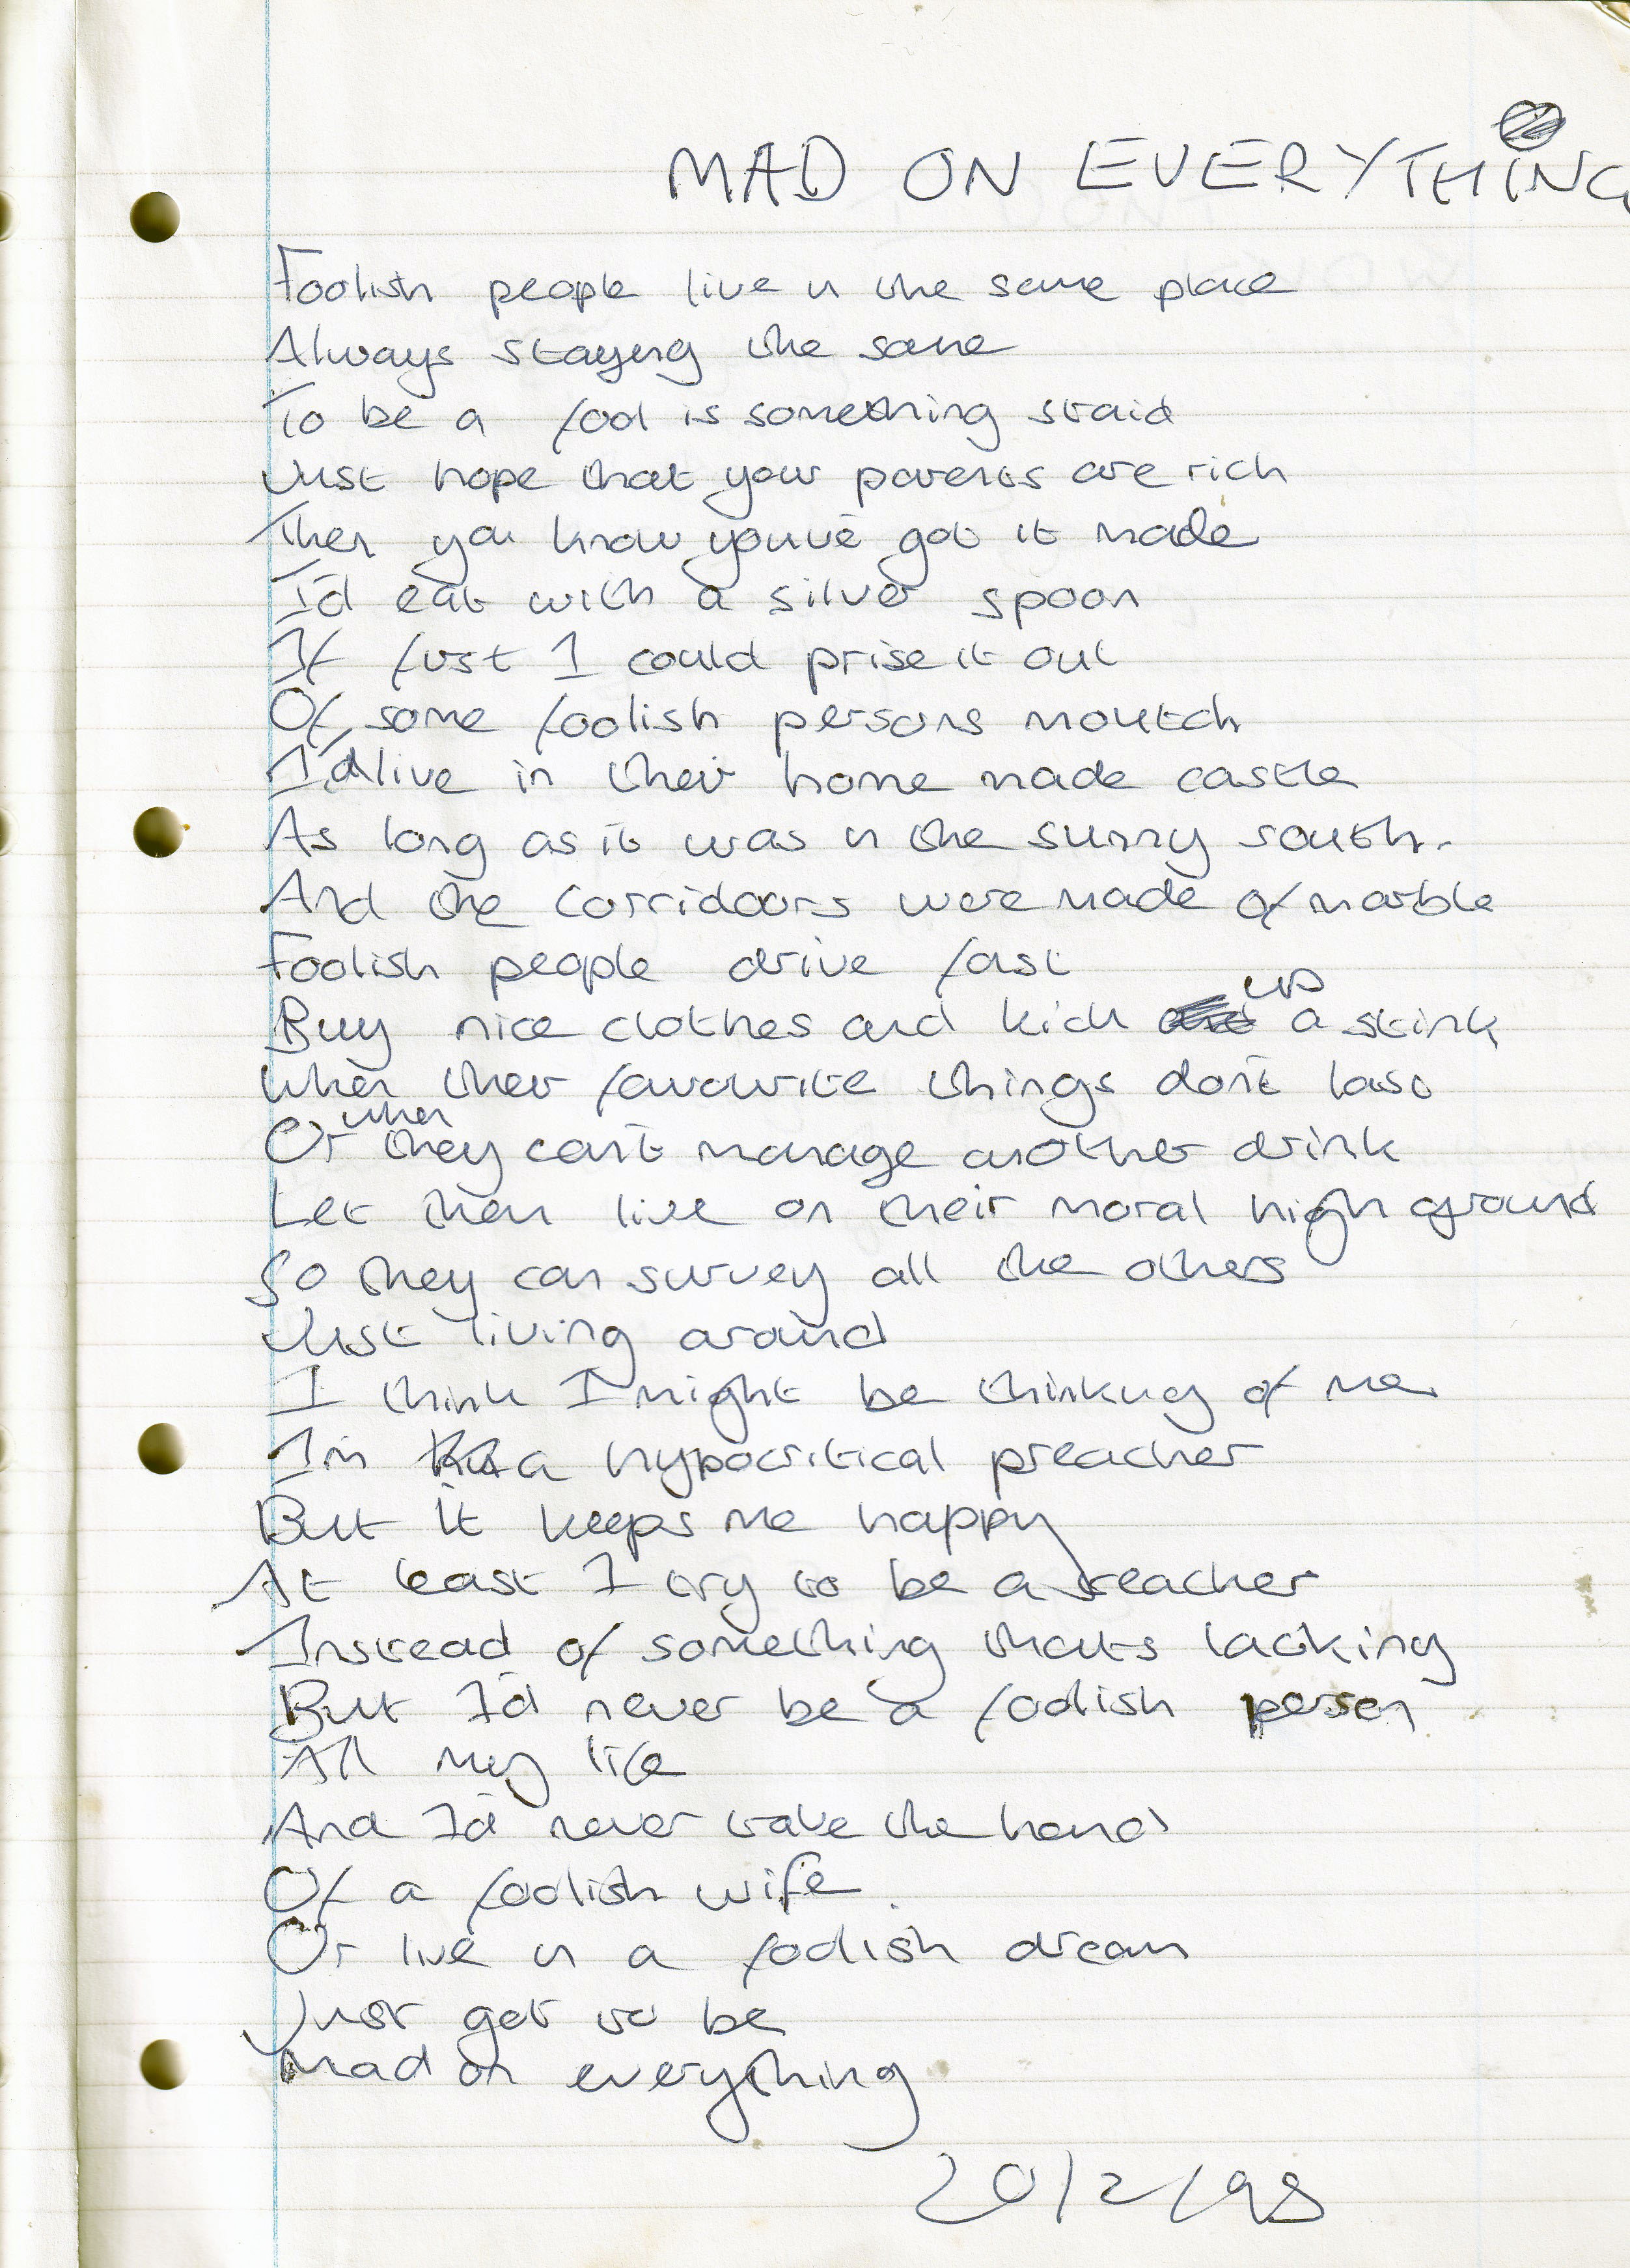 MAD ON EVERYTHING
Foolish people live in the same place
Always staying the same
To be a fool is something staid
Just hope that your parents are rich
Then you know youve got it made
I'd eat with a silver spoon
If just I could prise it out
Of some foolish persons moutch
I'd live in their home made castle
As long as it was in the sunny south.
And the corridoors were made of marble
Foolish people drive fast
Buy nice clothes and kick up a stink
When their favourite things don't last
Or when they can't manage another drink
Let them live on their moral high ground
So they can survey all the others
Just living around
I think I might be thinking of me.
I'm a hypocritical preacher
But it keeps me happy
At least I try to be a reacher
Instead of something thats lacking
But I'd never be a foolish person
All my life
And I'd never take the hand
Of a foolish wife.
Or live in a foolish dream
Just got to be
Mad on everything
20/2/98